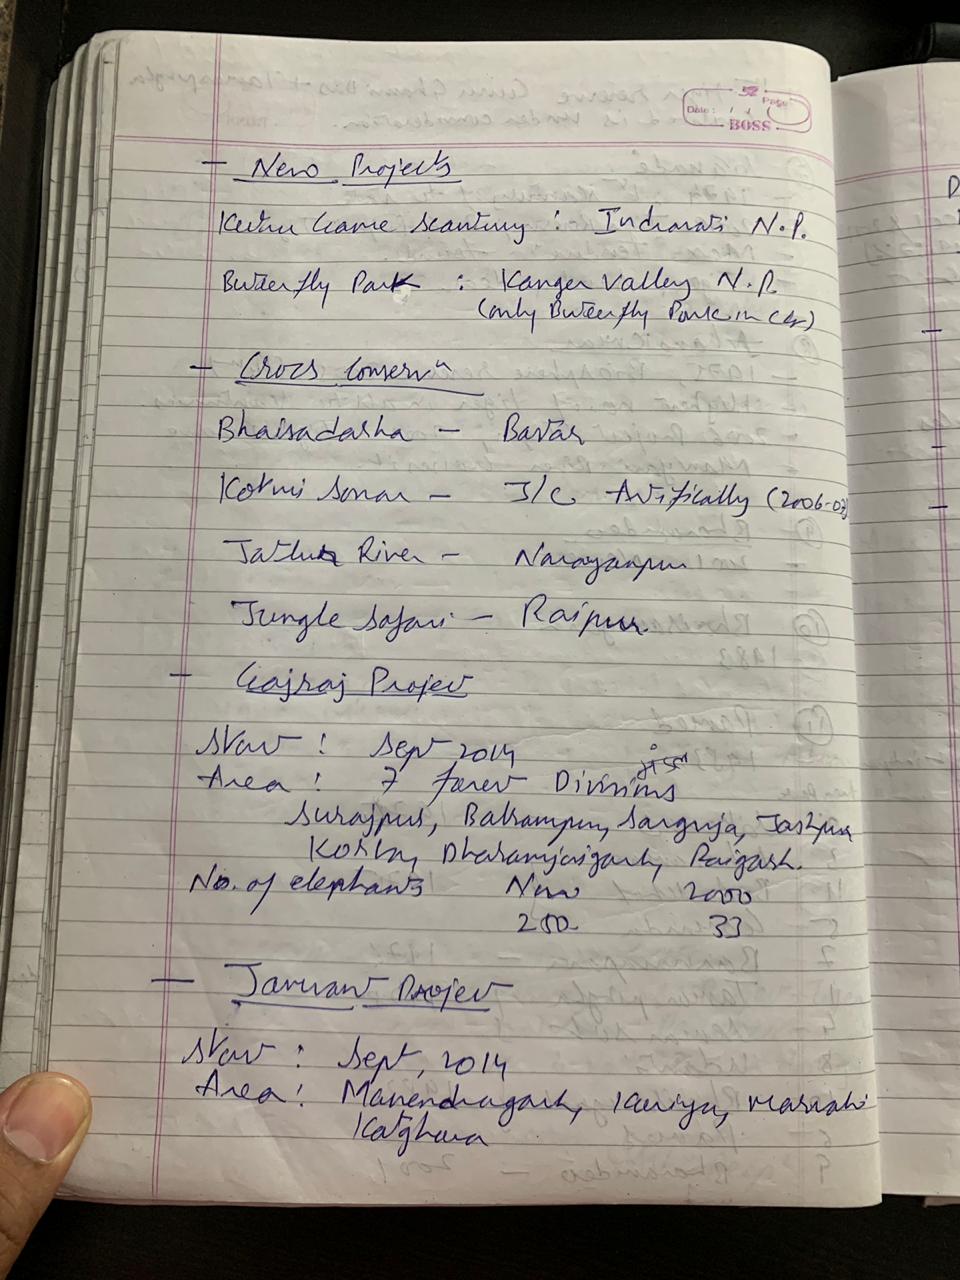 Date: / / Page
BOSS
- New Projects
Kutru Game Scantury : Indravati N.P.
Butterfly Park : Kanger Valley N.P.
(only Butterfly Park in CG)
- Crocs Conservn
Bhaisadarha - Bastar
Kotmi Sonar - J/C Artifically (2006-07)
River - Narayanpur
Jungle Safari - Raipur
- Gajraj Project
Start : Sept 2014
Area : 7 forest Divisions
Surajpur, Balrampur, Sarguja, Jashpur
Korba, Dharamjaigarh, Raigarh.
No. of elephants Now 2000
250 33
- Project
Start : Sept, 2014
Area : Manendragarh, Koriya, Marwahi
Katghora